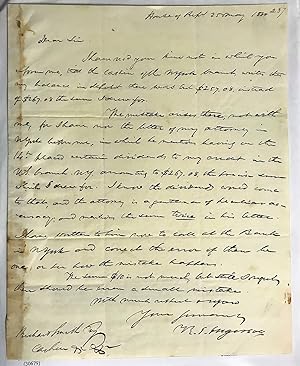 House of Rept 25 May 1830
237
Dear Sir
I have rec'd your line note in which you
inform me, that the Cashier of the N York branch writes that
my balance in deposit there is but $257.08, instead
of $267.08 the sum I drew for.
The mistake arises there, not with
me, for I have now the letter of my attorney in
N York before me, in which he mentions having on the
14th placed certain dividends to my credit in the
US branch N Y amounting to $267.08 the precise sum
that I drew for. I know the dividends would come
to that, and the attorney is a pattern of
accuracy and mentions the sum twice in his letter.
I have written to him now to call at the Bank
in N York and correct the error of them
or see how the mistake happens.
The sum $10 is not much, but still I regret
there should be even a small mistake.
With much respect
Yours sincerely
R. J. Ingersoll
Richard Smith Esq
Cashier &c